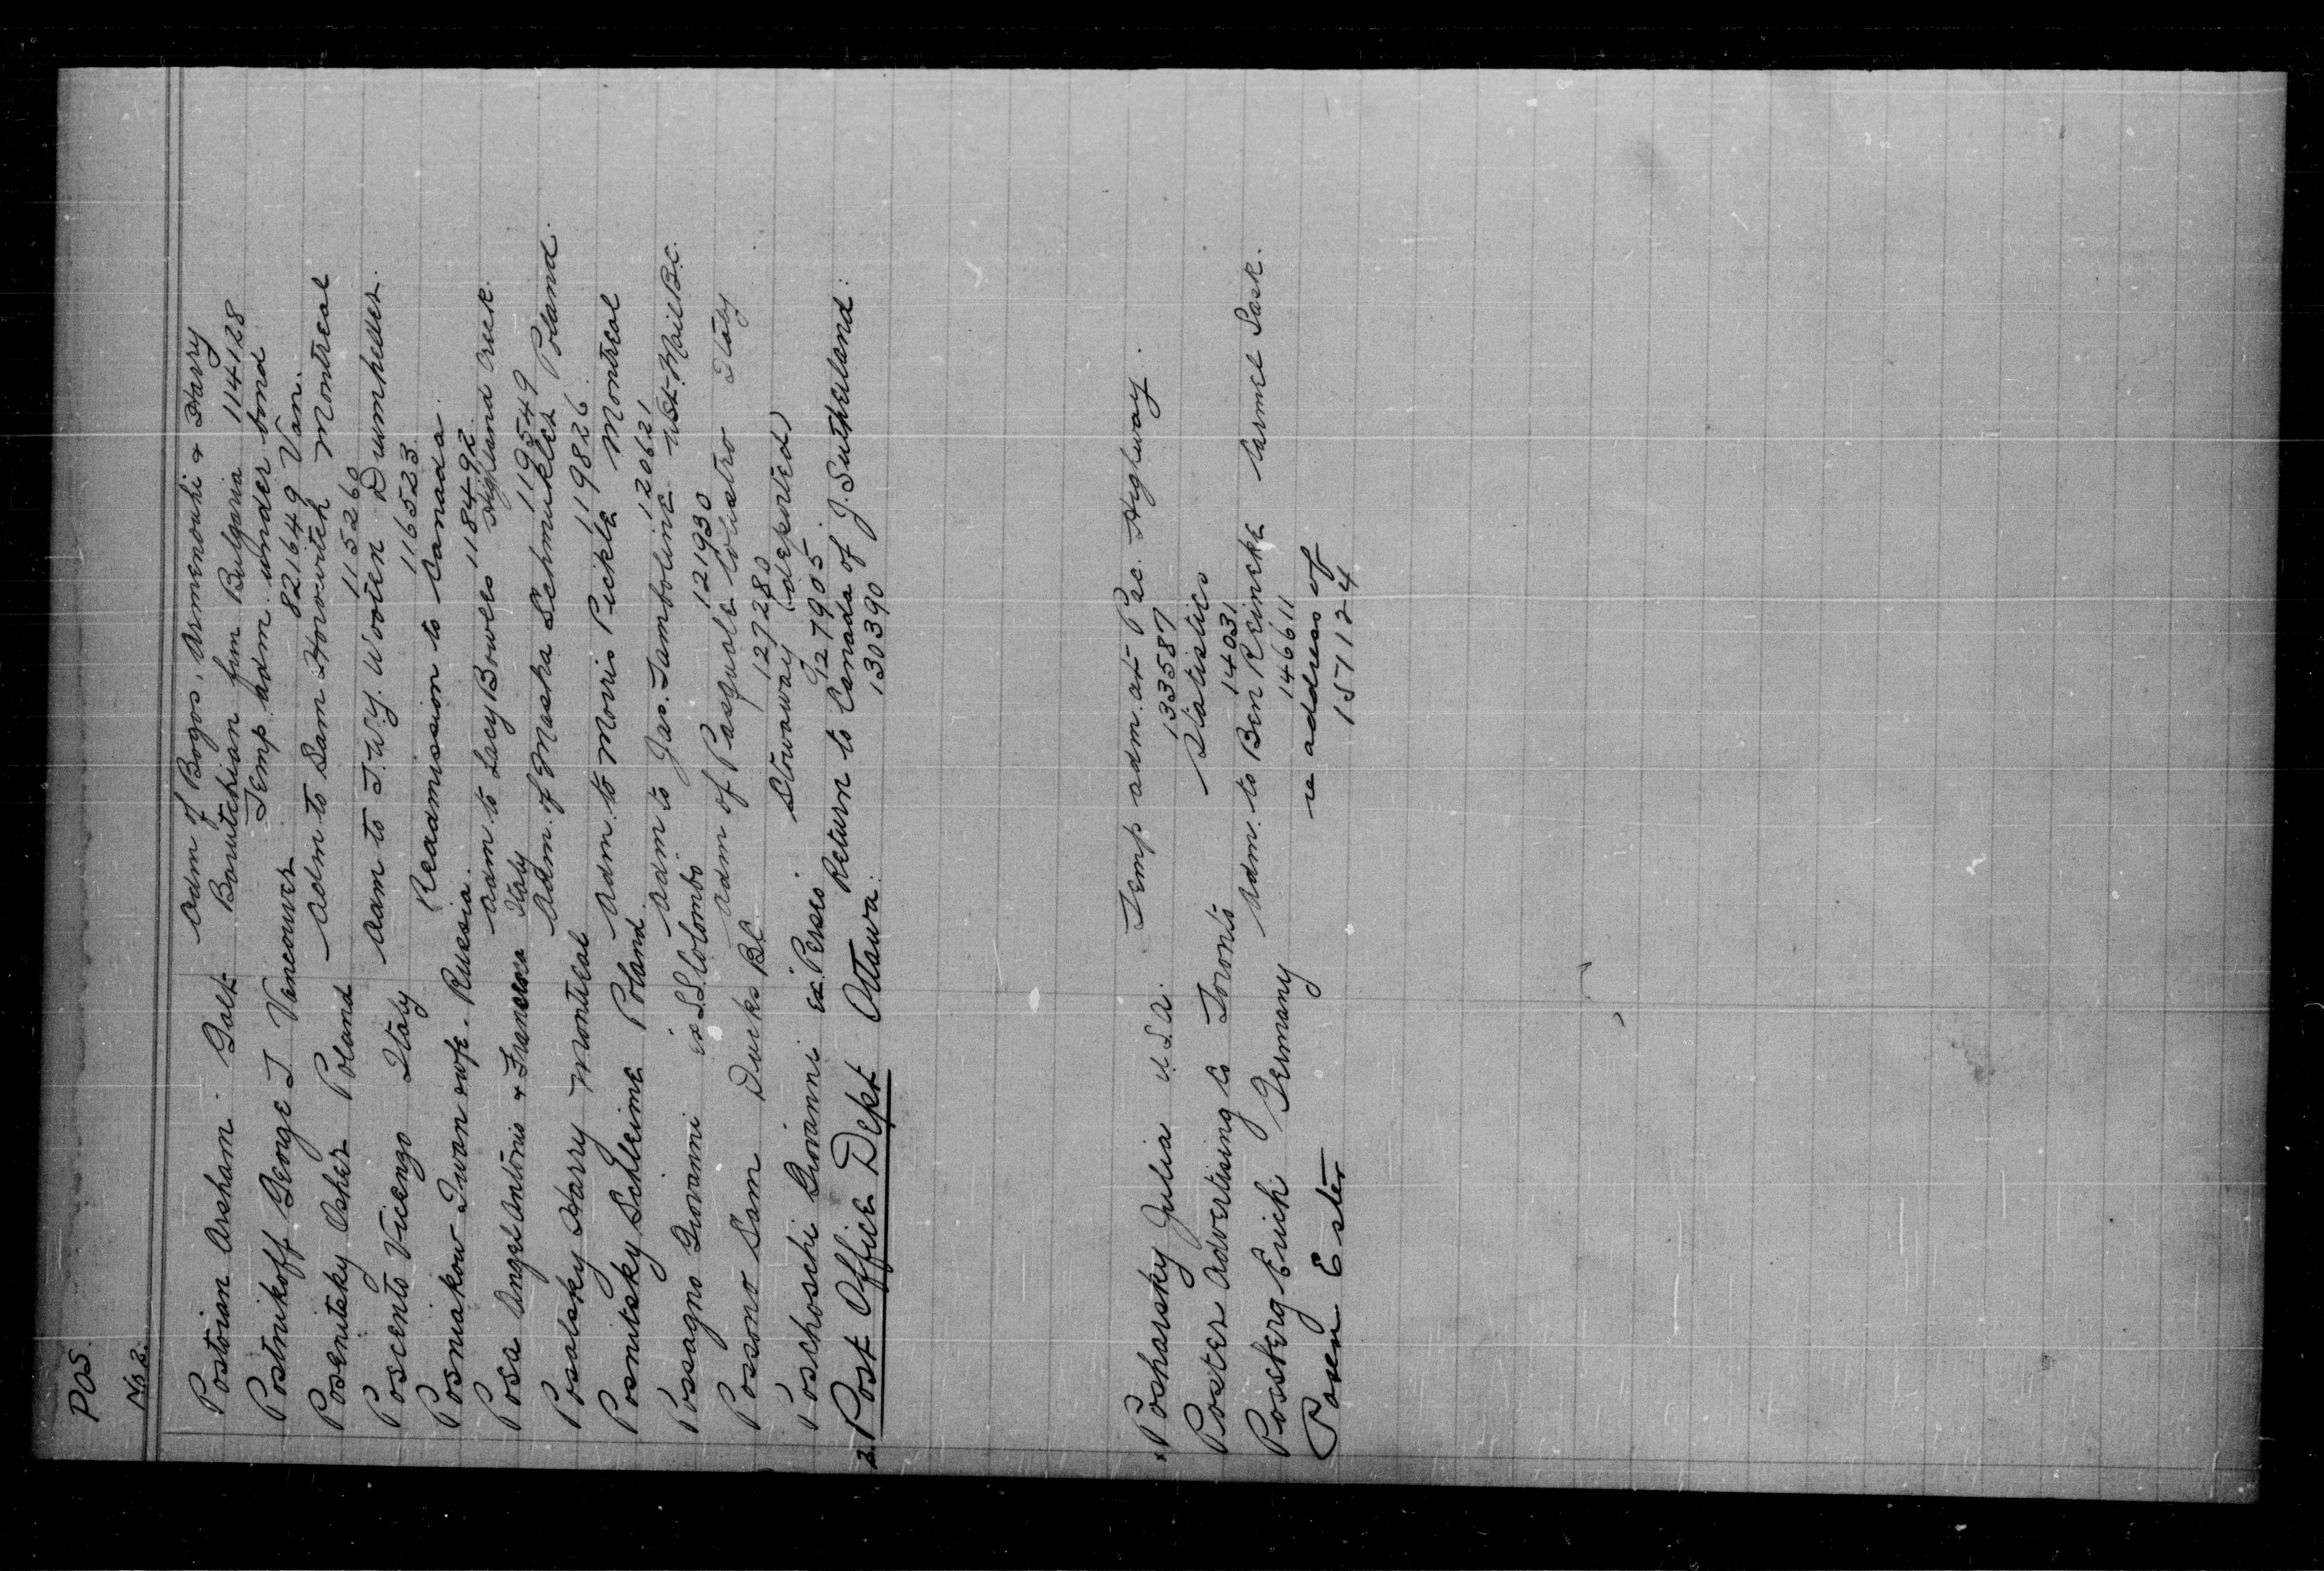 POS.
No 2.
Postoian Arsham Galt Adm of Bogos, Armenouhi & Harry
Barutchian from Bulgaria 114128
Postnikoff George J Vancouver Temp adm under bond
821649 Van.
Posenitsky Osher Poland Adm to Sam Horowitch Montreal
115260
Poscento Vicengo Italy Adm to J.W.Y. Wooten Drumheller.
116523
Posniakow Iwan & wife. Russia. Readmission to Canada.
118492
Posa Angel Antonio & Francesca Italy Adm. to Lacy Bowes Highland Creek.
119549
Posalsky Harry Montreal Adm. of Masha Schmukler Poland.
119826
Posnitsky Schleime Poland Adm. to Morris Pickle Montreal
120621
Possagno Giovanni ex S.S. Colombo Adm to Jas. Tamboline Wst-Mail B.C.
121930
Possono Sam Ducks B.C. Adm of Pasquale Colistro Italy
127280
Poschoschi Giovanni ex. Perseo. Stowaway (deported)
127905
2. Post Office Dept Ottawa. Return to Canada of J. Sutherland.
130390
Posharsky Julia U.S.A. Temp adm. at Pac. Highway.
133587
Poster Advertising Co Toronto Statistics
14031
Posskerg Erich Germany Adm. to Ben Reincke Carmel Sask.
146611
Posen Ester re address of
157124